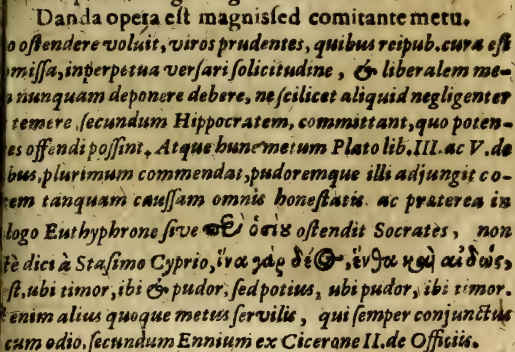 Danda opera eſt magnis ſed comitante metu.
o oſtendere voluit, viros prudentes, quibus reipub. cura eſt
miſſa, in perpetua verſari ſolicitudine, & liberalem me-
nunquam deponere debere, ne ſcilicet aliquid negligenter
temere, ſecundum Hippocratem, committant, quo poten-
es offendi poſſint. Atque hunc metum Plato lib. III. ac V. de
bus, plurimum commendat, pudoremque illi adjungit co-
em tanquam cauſſam omnis honeſtatis. ac præterea in
logo Euthyphrone ſive περὶ ὁσίου oſtendit Socrates, non
tè dici à Staſimo Cyprio, ἵνα γὰρ δέος, ἔνθα καὶ αἰδώς,
ſt, ubi timor, ibi & pudor, ſed potius, ubi pudor, ibi timor.
enim alius quoque metus ſervilis, qui ſemper conjunctus
cum odio, ſecundum Ennium ex Cicerone II. de Officiis.